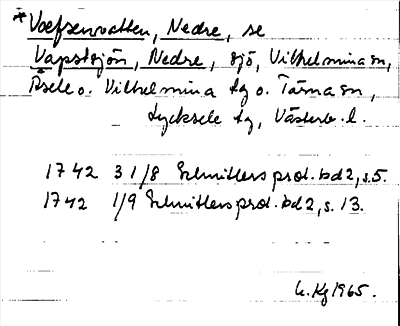 *Voefsenvatten, Nedre, se
Vapstsjön, Nedre, sjö, Vilhelmina sn,
Åsele o. Vilhelmina tg o. Tärna sn,
Lycksele tg, Västerb. l.
1742 31/8 Schnitlers prot. bd 2, s. 5.
1742 1/9 Schnitlers prot. bd 2, s. 13.
1965.